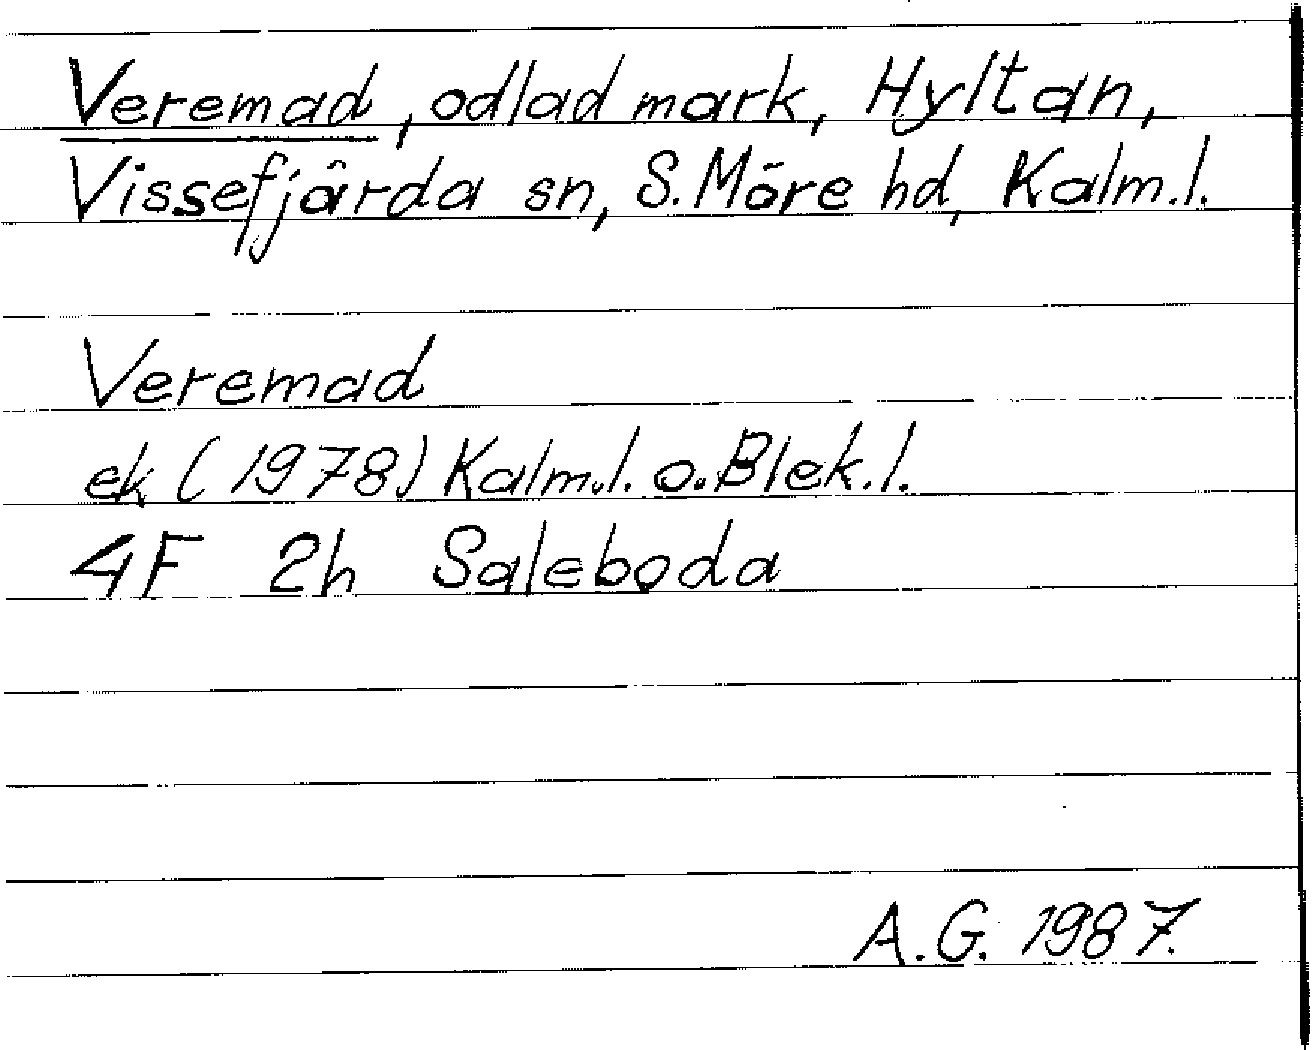 Veremad, odlad mark, Hyltan,
Vissefjärda sn, S. Möre hd, Kalm. l.
Veremad
ek (1978) Kalm. l. o. Blek. l.
4F 2h Saleboda
A.G. 1987.